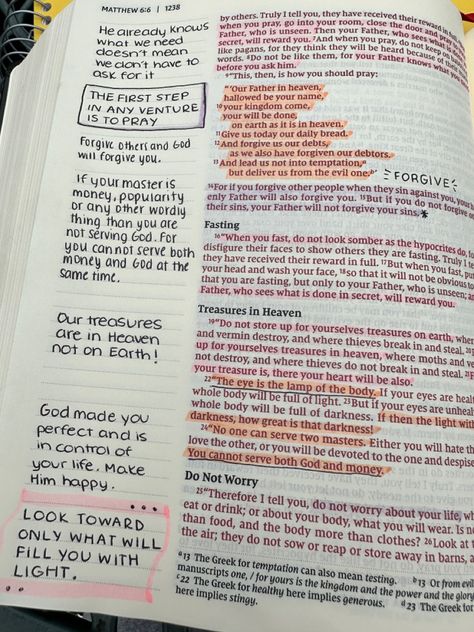 MATTHEW 6:6 | 1238
He already knows
what we need
doesn't mean
we don't have to
ask for it
THE FIRST STEP
IN ANY VENTURE
IS TO PRAY
Forgive others and God
will forgive you.
If your master is
money, popularity
or any other wordly
thing than you are
not serving God. For
you cannot serve both
money and God at the
same time.
Our treasures
are in Heaven
not on Earth!
God made you
perfect and is
in control of
your life. Make
Him happy.
LOOK TOWARD
ONLY WHAT WILL
FILL YOU WITH
LIGHT.
by others. Truly I tell you, they have received their reward in full
when you pray, go into your room, close the door and pray to
Father, who is unseen. Then your Father, who sees what is
secret, will reward you. 7And when you pray, do not keep on
like pagans, for they think they will be heard because of their
words. 8Do not be like them, for your Father knows what you
before you ask him.
9"This, then, is how you should pray:
"'Our Father in heaven,
hallowed be your name,
10your kingdom come,
your will be done,
on earth as it is in heaven.
11Give us today our daily bread.
12And forgive us our debts,
as we also have forgiven our debtors.
13And lead us not into temptation,a
but deliver us from the evil one.b'
FORGIVE
14For if you forgive other people when they sin against you, your
enly Father will also forgive you. 15But if you do not forgive
their sins, your Father will not forgive your sins.
Fasting
16"When you fast, do not look somber as the hypocrites do, fo
disfigure their faces to show others they are fasting. Truly I te
they have received their reward in full. 17But when you fast, put
your head and wash your face, 18so that it will not be obvious to
that you are fasting, but only to your Father, who is unseen;
Father, who sees what is done in secret, will reward you.
Treasures in Heaven
19"Do not store up for yourselves treasures on earth, where
and vermin destroy, and where thieves break in and steal. 20
up for yourselves treasures in heaven, where moths and ve
not destroy, and where thieves do not break in and steal. 21F
your treasure is, there your heart will be also.
22"The eye is the lamp of the body. If your eyes are healt
whole body will be full of light. 23But if your eyes are unheal
whole body will be full of darkness. If then the light with
darkness, how great is that darkness!
24"No one can serve two masters. Either you will hate the
love the other, or you will be devoted to the one and despise
You cannot serve both God and money.
Do Not Worry
25"Therefore I tell you, do not worry about your life, wh
eat or drink; or about your body, what you will wear. Is no
than food, and the body more than clothes? 26Look at t
the air; they do not sow or reap or store away in barns, a
a13 The Greek for temptation can also mean testing. b13 Or from evil
manuscripts one, / for yours is the kingdom and the power and the glory
c22 The Greek for healthy here implies generous. d23 The Greek for
here implies stingy.